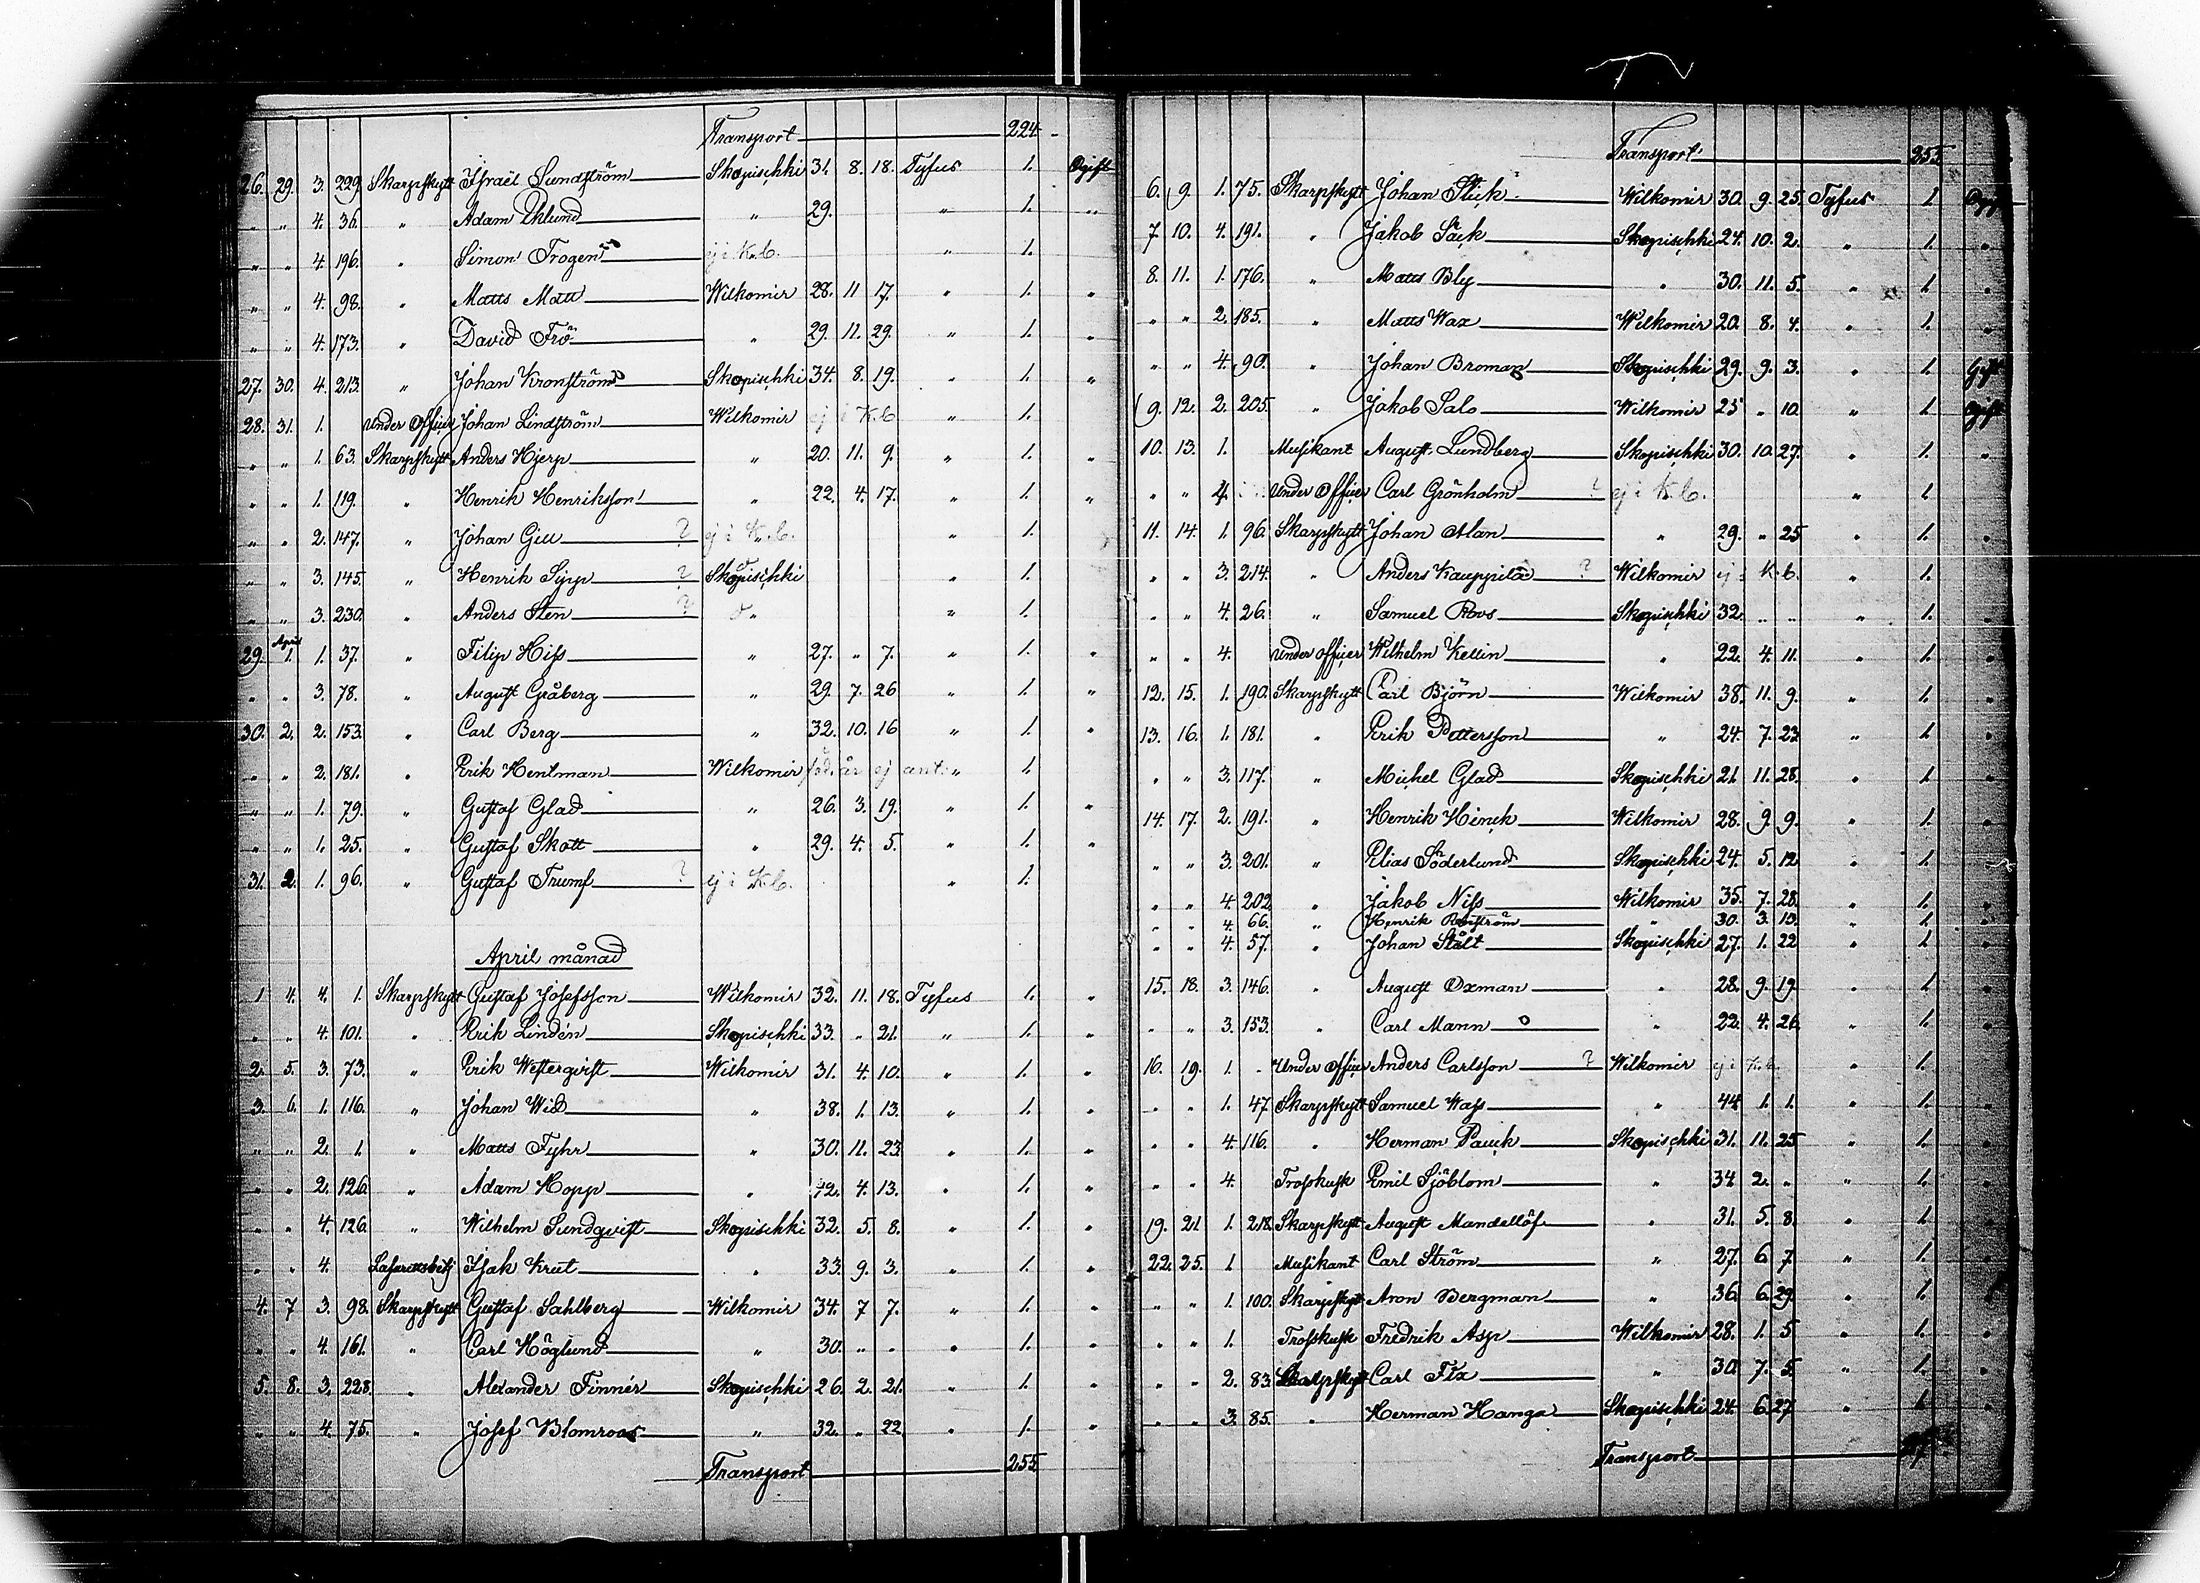 Transport 224
26. 29. 3. 229. Skarpskytt Israël Sundström Skopischki 31. 8. 18. Tyfus 1. Ogift
„ „ 4. 36. „ Adam Öhlund „ 29. „ 1. „
„ „ 4. 196. „ Simon Trogen ej i K.b. „ 1.
„ „ 4. 98. „ Matts Matt Wilkomir 28. 11 17. „ 1. „
„ „ 4. 173. „ David Frö „ 29. 11. 29. „ 1. „
27. 30. 4. 213. „ Johan Kronström Skopischki 34. 8. 19. „ 1. „
28. 31. 1. Under Officer Johan Lindström Wilkomir ej i K.b „ 1.
„ „ 1. 63. Skarpskytt Anders Hjerp „ 20. 11. 9. „ 1. „
„ „ 1. 119. „ Henrik Henriksson „ 22. 4. 17. „ 1. „
„ „ 2. 147. „ Johan Gill ? ej i K.b. „ 1.
„ „ 3. 145. „ Henrik Sipp ? Skopischki „ 1.
„ „ 3. 230. „ Anders Sten ? „ „ 1.
29. April 1. 1. 37. „ Filip Hiss „ 27. „ 7. „ 1. „
„ „ 3. 78. „ August Gråberg „ 29. 7. 26 „ 1. „
30. 2. 2. 153. „ Carl Berg „ 32. 10. 16 „ 1. „
„ „ 2. 181. „ Erik Hentman Wilkomir föd. år ej ant. „ 1.
„ „ 1. 79. „ Gustaf Glad „ 26. 3. 19. „ 1. „
„ „ 1. 25. „ Gustaf Skott „ 29. 4. 5. „ 1. „
31. 2. 1. 96. „ Gustaf Trumf ? ej i K.b. „ 1.
April månad
1 4. 4. 1. Skarpskytt Gustaf Josefsson Wilkomir 32. 11. 18. Tyfus 1. „
„ „ 4. 101. „ Erik Lindén Skopischki 33. „ 21. „ 1. „
2. 5. 3. 73. „ Erik Westerqvist Wilkomir 31. 4. 10. „ 1. „
3. 6. 1. 116. „ Johan Wid „ 38. 1. 13. „ 1. „
„ „ 2. 1. „ Matts Fyhr „ 30. 11. 23. „ 1. „
„ „ 2. 126. „ Adam Hopp „ 42. 4. 13. „ 1. „
„ „ 4. 126. „ Wilhelm Sundqvist Skopischki 32. 5. 8. „ 1. „
„ „ 4. Isak Krut „ 33. 9. 3. „ 1. „
4. 7 3. 98. Skarpskytt Gustaf Sahlberg Wilkomir 34. 7 7. „ 1. „
„ „ 4. 161. „ Carl Höglund „ 30. „ „ „ 1. „
5. 8. 3. 228. „ Alexander Finnér Skopischki 26. 2. 21. „ 1. „
„ „ 4. 75. „ Josef Blomroos „ 32. „ 22 „ 1. „
Transport 255
Transport 255
6. 9. 1. 75. Skarpskytt Johan Stick Wilkomir 30. 9. 25. Tyfus 1 Ogift
7 10. 4. 191. „ Jakob Säck Skopischki 24. 10. 2. „ 1. „
8. 11. 1. 176. „ Matts Bly „ 30. 11. 5. „ 1. „
„ „ 2. 185. „ Matts Wax Wilkomir 20. 8. 4. „ 1. „
„ „ 4. 90. „ Johan Broman Skopischki 29. 9. 3. „ 1. Gift
9. 12. 2. 205. „ Jakob Salo Wilkomir 25 „ 10. „ 1. Ogift
10. 13. 1. Musikant August Lundberg Skopischki 30. 10. 27. „ 1. „
„ „ 4. Under Officer Carl Grönholm ? ej i K.b. „ 1.
11. 14. 1. 96. Skarpskytt Johan Alan „ 29. „ 25 „ 1. „
„ „ 3. 214. „ Anders Kauppila ? Wilkomir ej i K.b. „ 1.
„ „ 4. 26. „ Samuel Roos Skopischki 32. „ „ „ 1. „
„ „ 4. Under officer Wilhelm Kellin „ 22. 4. 11. „ 1. „
12. 15. 1. 190. Skarpskytt Carl Björn Wilkomir 38. 11. 9. „ 1. „
13. 16. 1. 181. „ Erik Pettersson „ 24. 7. 23. „ 1. „
„ „ 3. 117. „ Michel Glad Skopischki 21. 11. 28. „ 1. „
14. 17. 2. 191. „ Henrik Hinck Wilkomir 28. 9. 9. „ 1. „
„ „ 3. 201. „ Elias Söderlund Skopischki 24. 5. 12. „ 1. „
„ „ 4. 202. „ Jakob Niss Wilkomir 35. 7. 28. „ 1. „
„ „ 4. 66. „ Henrik „ 30. 3. 13. „ 1. „
„ „ 4. 57. „ Johan Stålt Skopischki 27. 1. 22 „ 1. „
15. 18. 3. 146. „ August Oxman „ 28. 9. 19. „ 1. „
„ „ 3. 153. „ Carl Mann „ 22. 4. 26. „ 1. „
16. 19. 1. Under Officer Anders Carlsson ? Wilkomir ej i K.b. „ 1.
„ „ 1. 47 Skarpskytt Samuel Wass „ 44. 1. 1. „ 1. „
„ „ 4. 116. „ Herman Pauck Skopischki 31. 11. 25 „ 1. „
„ „ 4. Trosskusk Emil Sjöblom „ 34. 2. „ „ 1. „
19. 21 1. 218. Skarpskytt August Mandellöf „ 31. 5. 8. „ 1. „
22. 25. 1 Musikant Carl Ström „ 27. 6. 7. „ 1. „
„ „ 1. 100. Skarpskytt Aron Bergman „ 36. 6. 29. „ 1.
„ „ 1. Trosskusk Fredrik Asp Wilkomir 28. 1. 5 „ 1. „
„ „ 2. 83. Skarpskytt Carl Flx „ 30. 7. 5. „ 1. „
„ „ 3. 85. „ Herman Hanga Skopischki 24. 6. 27 „ 1. „
Transport